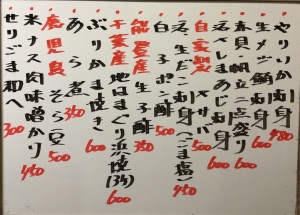 やりいか刺身 480
生メジ鮪刺身 600
赤貝帆立二点盛り 600
活〆しまあじ刺身 600
自家製〆サバ 500
名生だこ刺身(ごま塩) 450
白子ポン酢 500
能登産生子酢 350
千葉産地はまぐり浜焼(3ヶ) 600
ぶりかま焼き 600
あら煮 350
鹿児島そら豆 500
米ナス肉味噌かけ 450
せりごま和へ 300